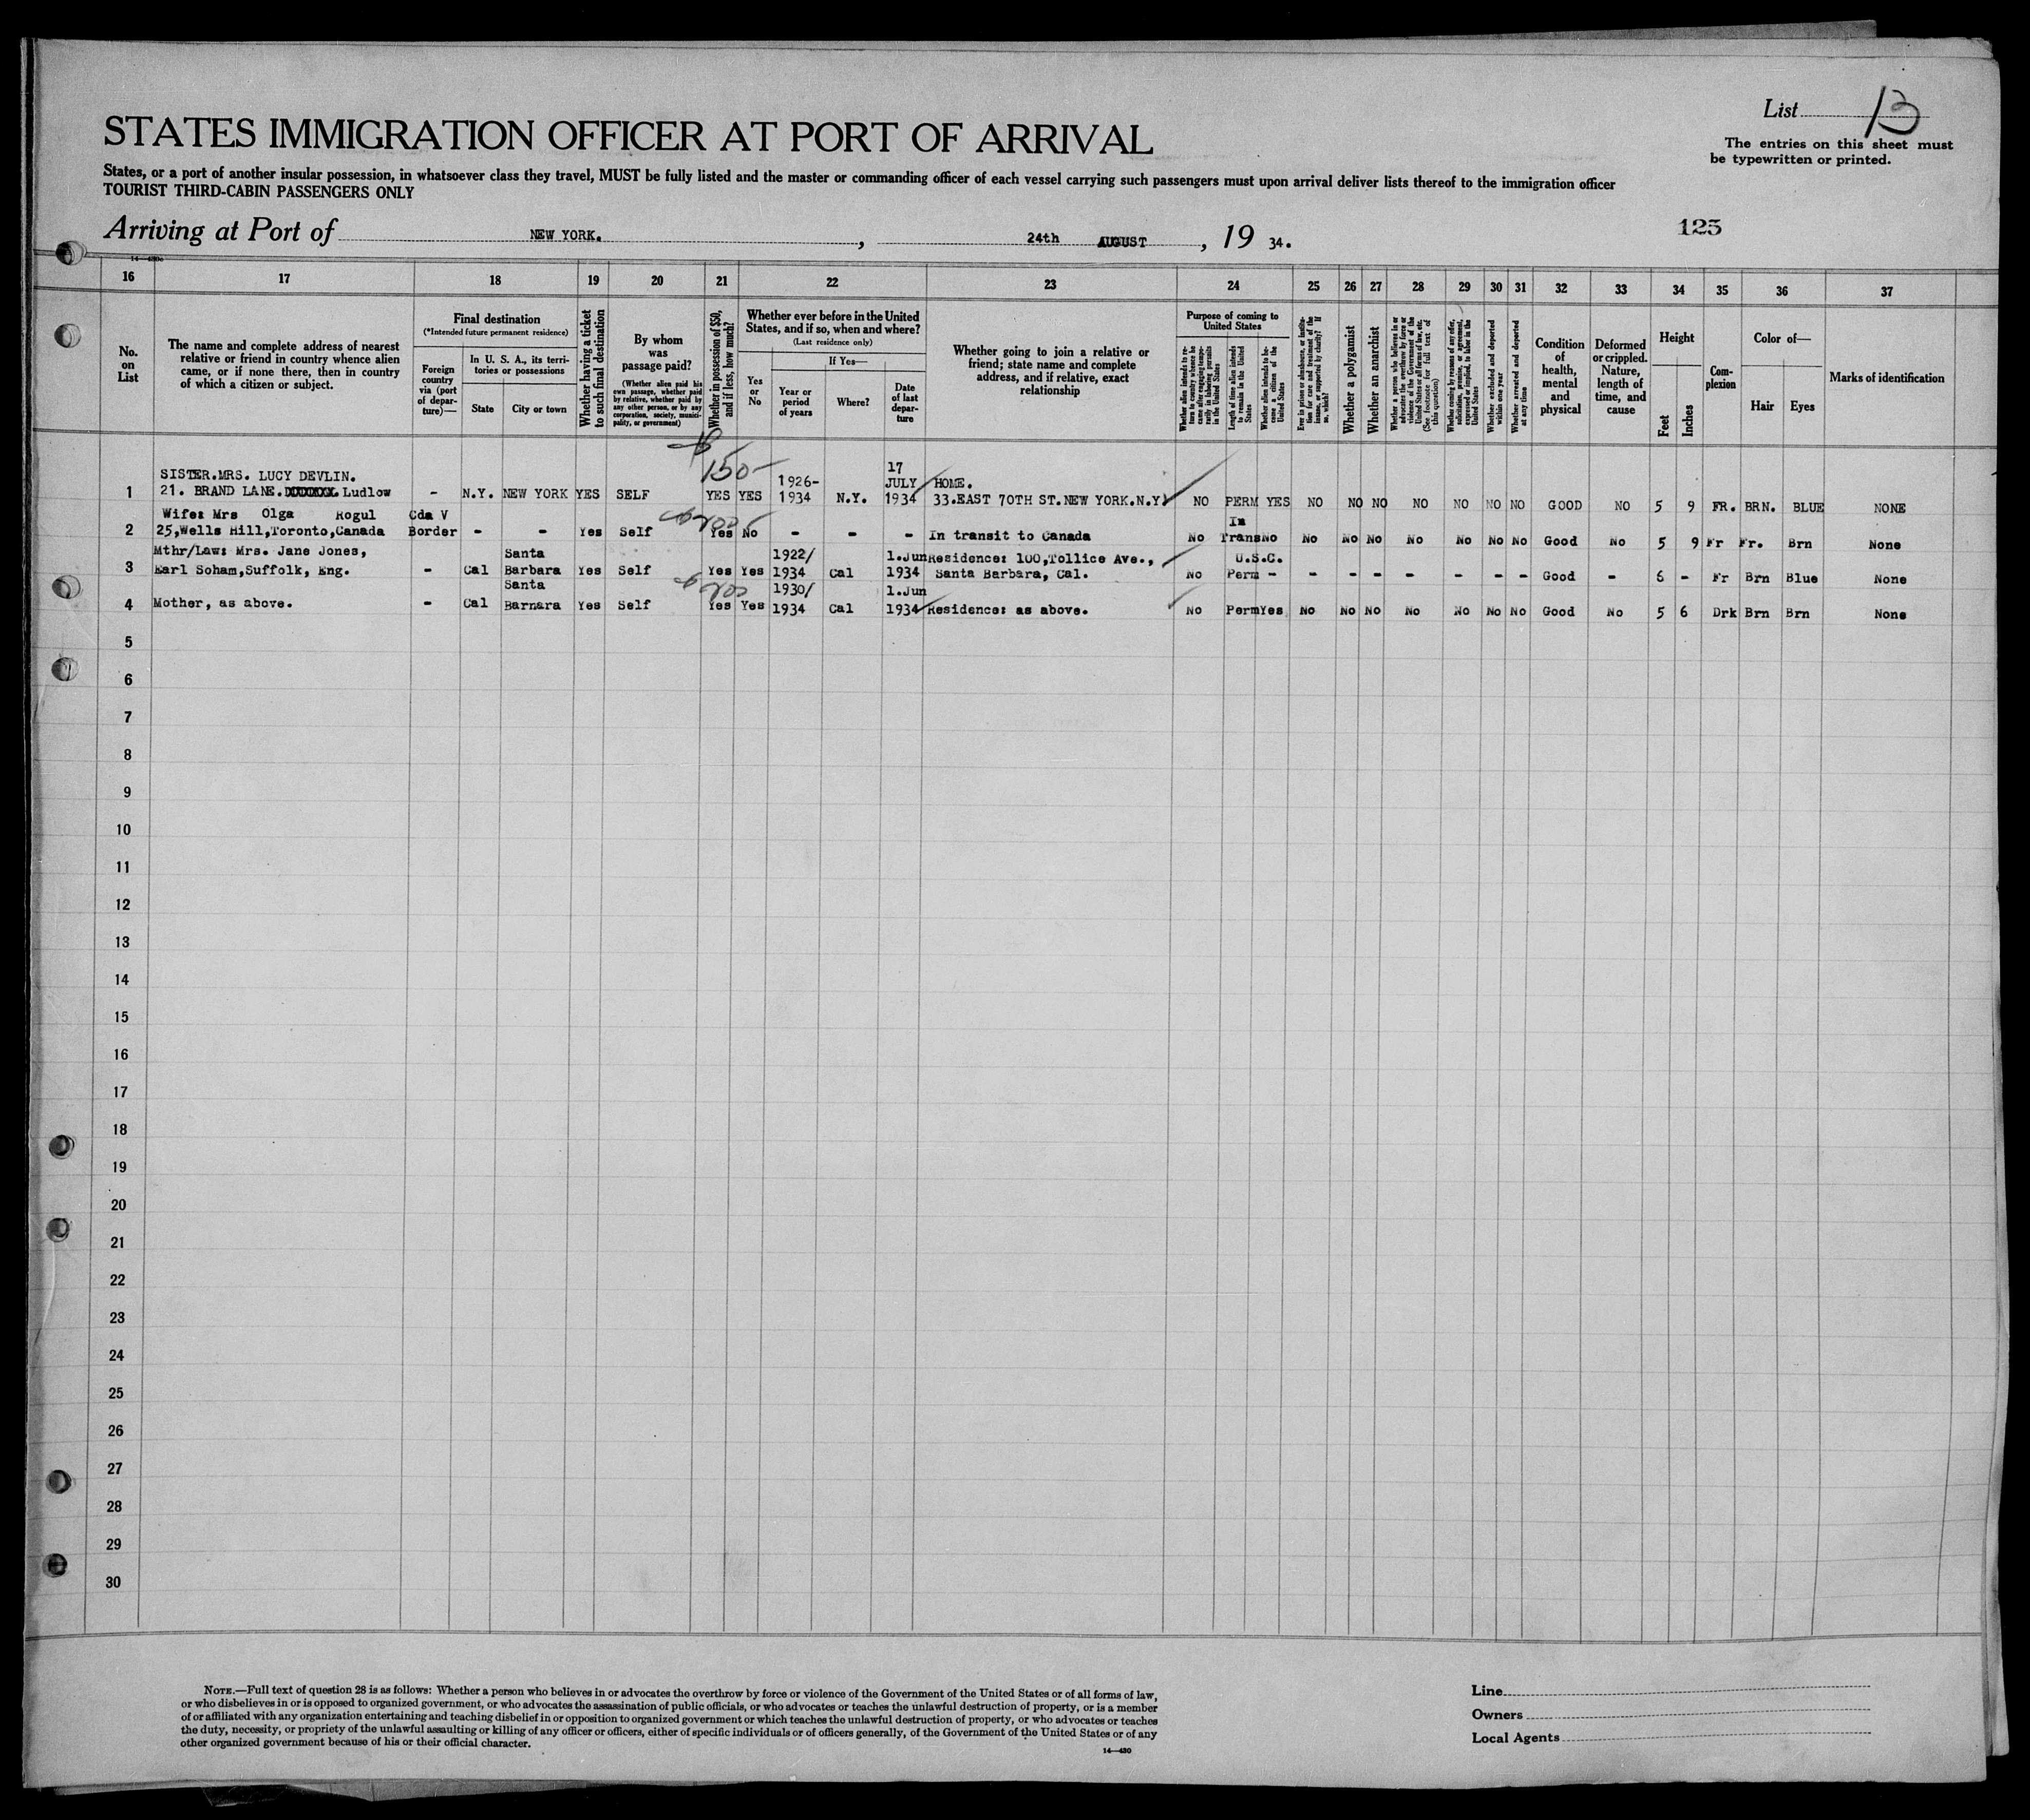 List 13
The entries on this sheet must
be typewritten or printed.
STATES IMMIGRATION OFFICER AT PORT OF ARRIVAL
States, or a port of another insular possession, in whatsoever class they travel, MUST be fully listed and the master or commanding officer of each vessel carrying such passengers must upon arrival deliver lists thereof to the immigration officer
TOURIST THIRD-CABIN PASSENGERS ONLY
125
Arriving at Port of NEW YORK. , 24th AUGUST , 19 34.
16 17 18 19 20 21 22 23 24 25 26 27 28 29 30 31 32 33 34 35 36 37
No.
on
List
The name and complete address of nearest
relative or friend in country whence alien
came, or if none there, then in country
of which a citizen or subject.
Final destination
(*Intended future permanent residence)
Foreign
country
via (port
of depar-
ture)—
In U. S. A., its terri-
tories or possessions
State City or town
Whether having a ticket
to such final destination
By whom
was
passage paid?
(Whether alien paid his
own passage, whether paid
by relative, whether paid by
any other person, or by any
corporation, society, munici-
pality, or government)
Whether in possession of $50,
and if less, how much?
Whether ever before in the United
States, and if so, when and where?
(Last residence only)
Yes
or
No
If Yes—
Year or
period
of years
Where?
Date
of last
depar-
ture
Whether going to join a relative or
friend; state name and complete
address, and if relative, exact
relationship
Purpose of coming to
United States
Whether alien intends to re-
turn to country whence he
came after engaging tempo-
rarily in laboring pursuits
in the United States
Length of time alien intends
to remain in the United
States
Whether alien intends to be-
come a citizen of the
United States
Ever in prison or almshouse, or institu-
tion for care and treatment of the
insane, or supported by charity? If
so, which?
Whether a polygamist
Whether an anarchist
Whether a person who believes in or
advocates the overthrow by force or
violence of the Government of the
United States or all forms of law, etc.
(See footnote for full text of
this question)
Whether coming by reasons of any offer,
solicitation, promise, or agreement,
expressed or implied, to labor in the
United States
Whether excluded and deported
within one year
Whether arrested and deported
at any time
Condition
of
health,
mental
and
physical
Deformed
or crippled.
Nature,
length of
time, and
cause
Height
Feet
Inches
Com-
plexion
Color of—
Hair Eyes
Marks of identification
$ 150-
SISTER.MRS. LUCY DEVLIN. 1926- 17 JULY HOME.
1 21. BRAND LANE. Ludlow - N.Y. NEW YORK YES SELF YES YES 1934 N.Y. 1934 33.EAST 70TH ST.NEW YORK.N.Y. NO PERM YES NO NO NO NO NO NO NO GOOD NO 5 9 FR. BRN. BLUE NONE
Wife: Mrs Olga Rogul Cda V In
2 25,Wells Hill,Toronto,Canada Border - - Yes Self Yes No - - - In transit to Canada No Trans No No No No No No No No Good No 5 9 Fr Fr. Brn None
Mthr/Law: Mrs. Jane Jones, Santa 1922/ 1.Jun Residence: 100,Tollice Ave., U.S.C.
3 Earl Soham,Suffolk, Eng. - Cal Barbara Yes Self Yes Yes 1934 Cal 1934 Santa Barbara, Cal. No Perm - - - - - - - - Good - 6 - Fr Brn Blue None
Santa 1930/ 1.Jun
4 Mother, as above. - Cal Barnara Yes Self Yes Yes 1934 Cal 1934 Residence: as above. No Perm Yes No No No No No No No Good No 5 6 Drk Brn Brn None
5
6
7
8
9
10
11
12
13
14
15
16
17
18
19
20
21
22
23
24
25
26
27
28
29
30
NOTE.—Full text of question 28 is as follows: Whether a person who believes in or advocates the overthrow by force or violence of the Government of the United States or of all forms of law,
or who disbelieves in or is opposed to organized government, or who advocates the assassination of public officials, or who advocates or teaches the unlawful destruction of property, or is a member
of or affiliated with any organization entertaining and teaching disbelief in or opposition to organized government or which teaches the unlawful destruction of property, or who advocates or teaches
the duty, necessity, or propriety of the unlawful assaulting or killing of any officer or officers, either of specific individuals or of officers generally, of the Government of the United States or of any
other organized government because of his or their official character.
14—430
Line
Owners
Local Agents